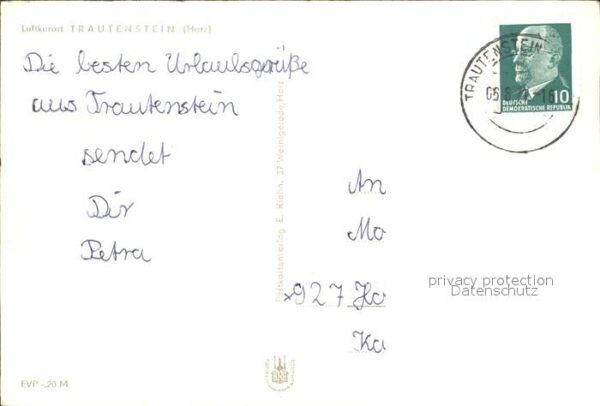 Luftkurort TRAUTENSTEIN (Harz)
Die besten Urlaubsgrüße
aus Trautenstein
sendet
Dir
Petra
Postkartenverlag E. Riehn, 37 Wernigerode, Harz
TRAUTENSTEIN
10
DEUTSCHE
DEMOKRATISCHE REPUBLIK
An
Mo
x927 Ho
Ka
privacy protection
Datenschutz
EVP -.20 M